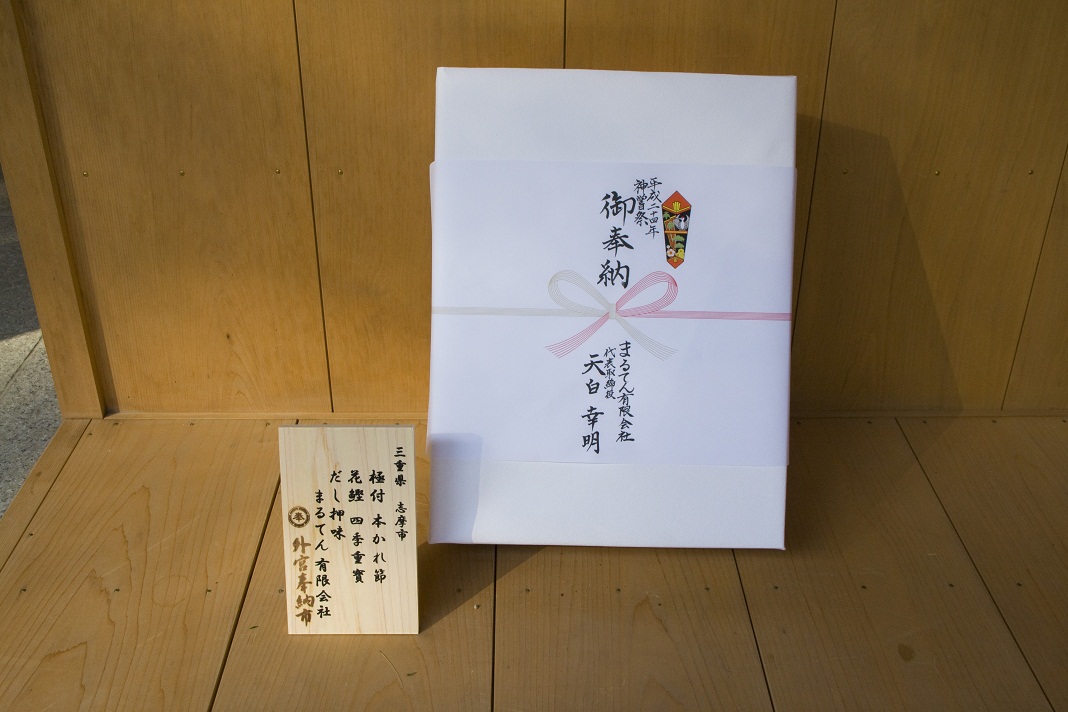 三重県 志摩市
極付 本かれ節
花鰹 四季重寶
だし押味
まるてん有限会社
外宮奉納市
平成二十四年
神嘗祭
御奉納
まるてん有限会社
代表取締役
天白 幸明